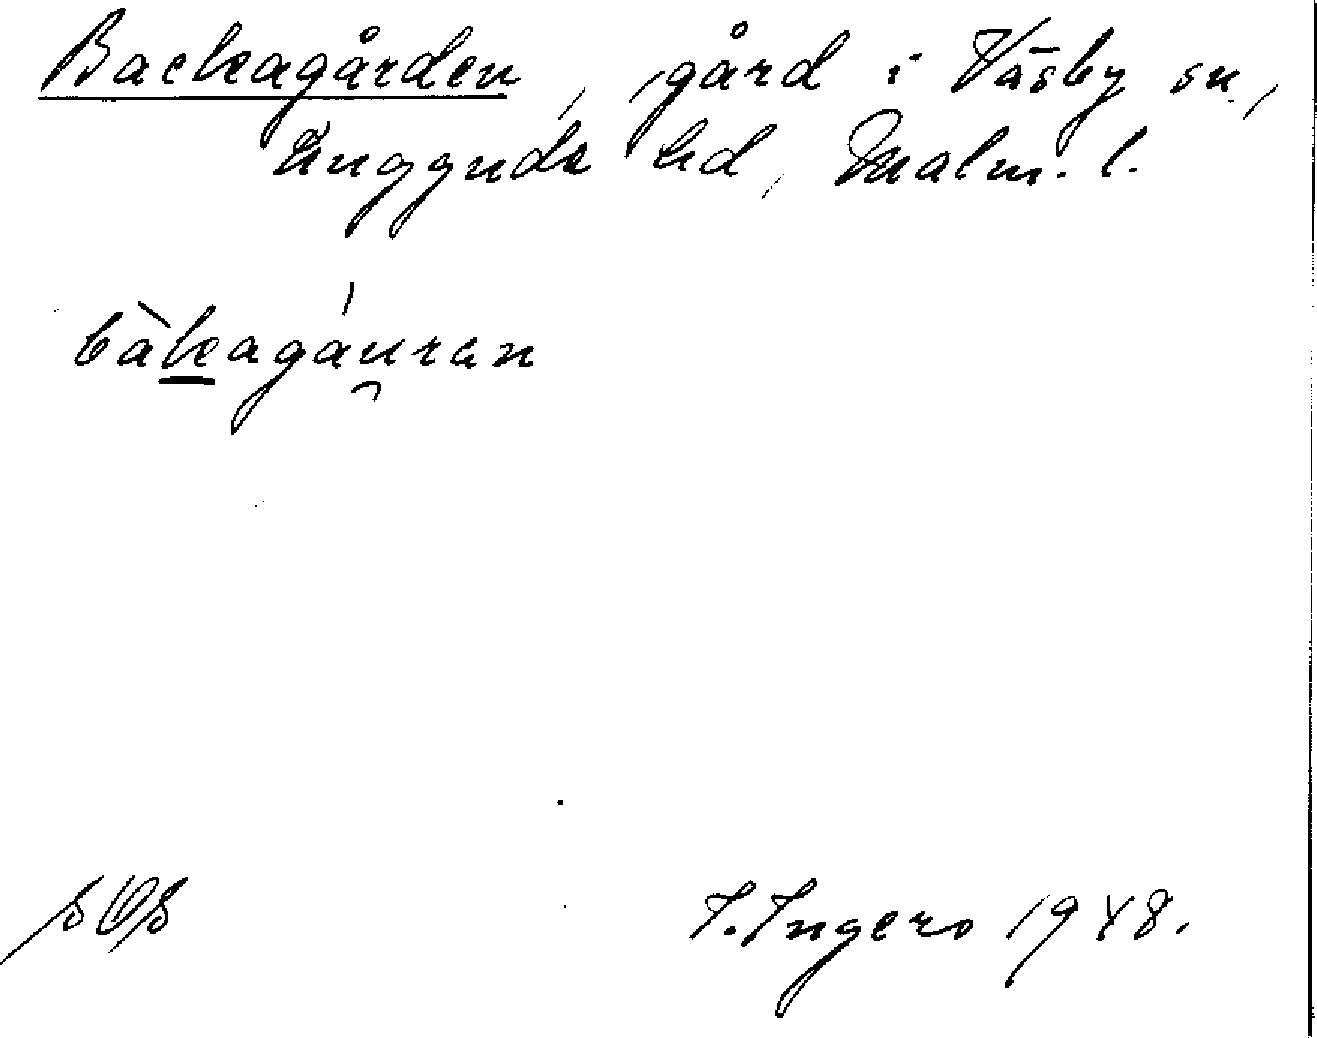 Backagården, gård i Väsby sn,
Luggude hd, Malm. l.
bàkagáu̯ran
SOS
I. Ingers 1948.